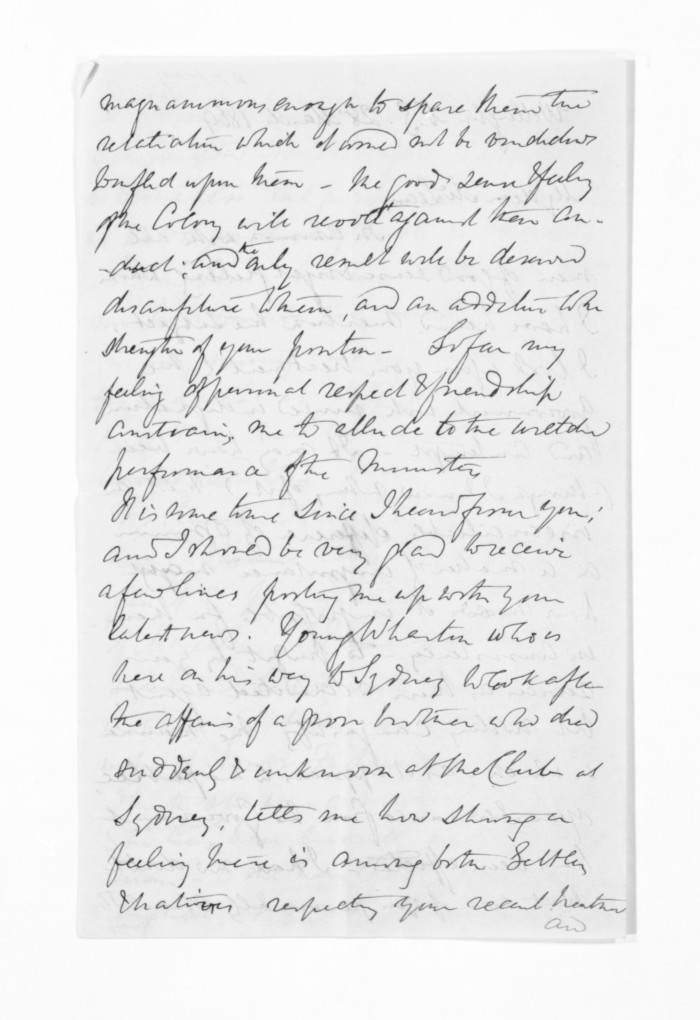 magnanimous enough to spare them the
retaliation which it would not be vindictive
 upon them - the good sense & feeling
of the Colony will revolt against their con-
-duct; and the only result will be deserved
discomfiture to them, and an addition to the
strength of your position - So far my
feeling of personal respect & friendship
constrains me to allude to the wretched
performance of the Ministers
It is some time since I heard from you;
and I should be very glad to receive
a few lines posting me up with your
latest news. Young Wharton who is
here on his way to Sydney to look after
the affairs of a poor brother who died
suddenly & unknown at the Club at
Sydney, tells me how strong a
feeling there is among both Settlers
& natives respecting your recent treatment
and